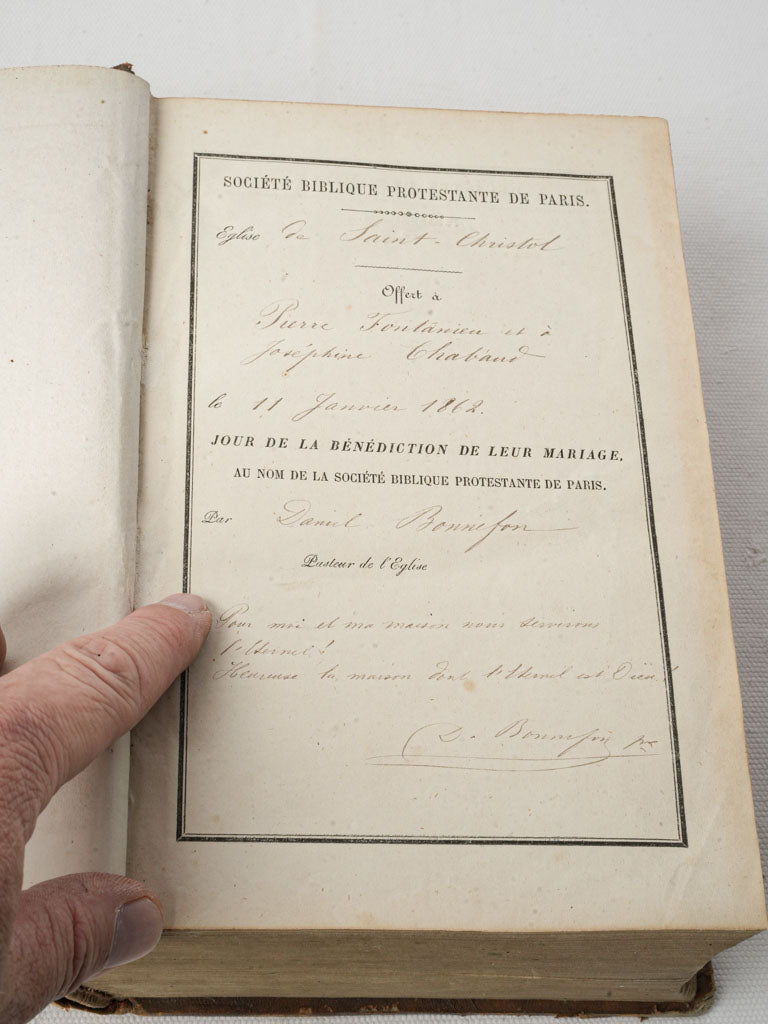 SOCIÉTÉ BIBLIQUE PROTESTANTE DE PARIS.
Eglise de Saint-Christol
Offert à
Pierre Fontanieu et à
Joséphine Chabaud
le 11 Janvier 1862.
JOUR DE LA BÉNÉDICTION DE LEUR MARIAGE,
AU NOM DE LA SOCIÉTÉ BIBLIQUE PROTESTANTE DE PARIS.
Par Daniel Bonnefon
Pasteur de l'Eglise
Pour moi et ma maison nous servirons
l'Eternel!
Heureuse la maison dont l'Eternel est Dieu!
D. Bonnefon pr